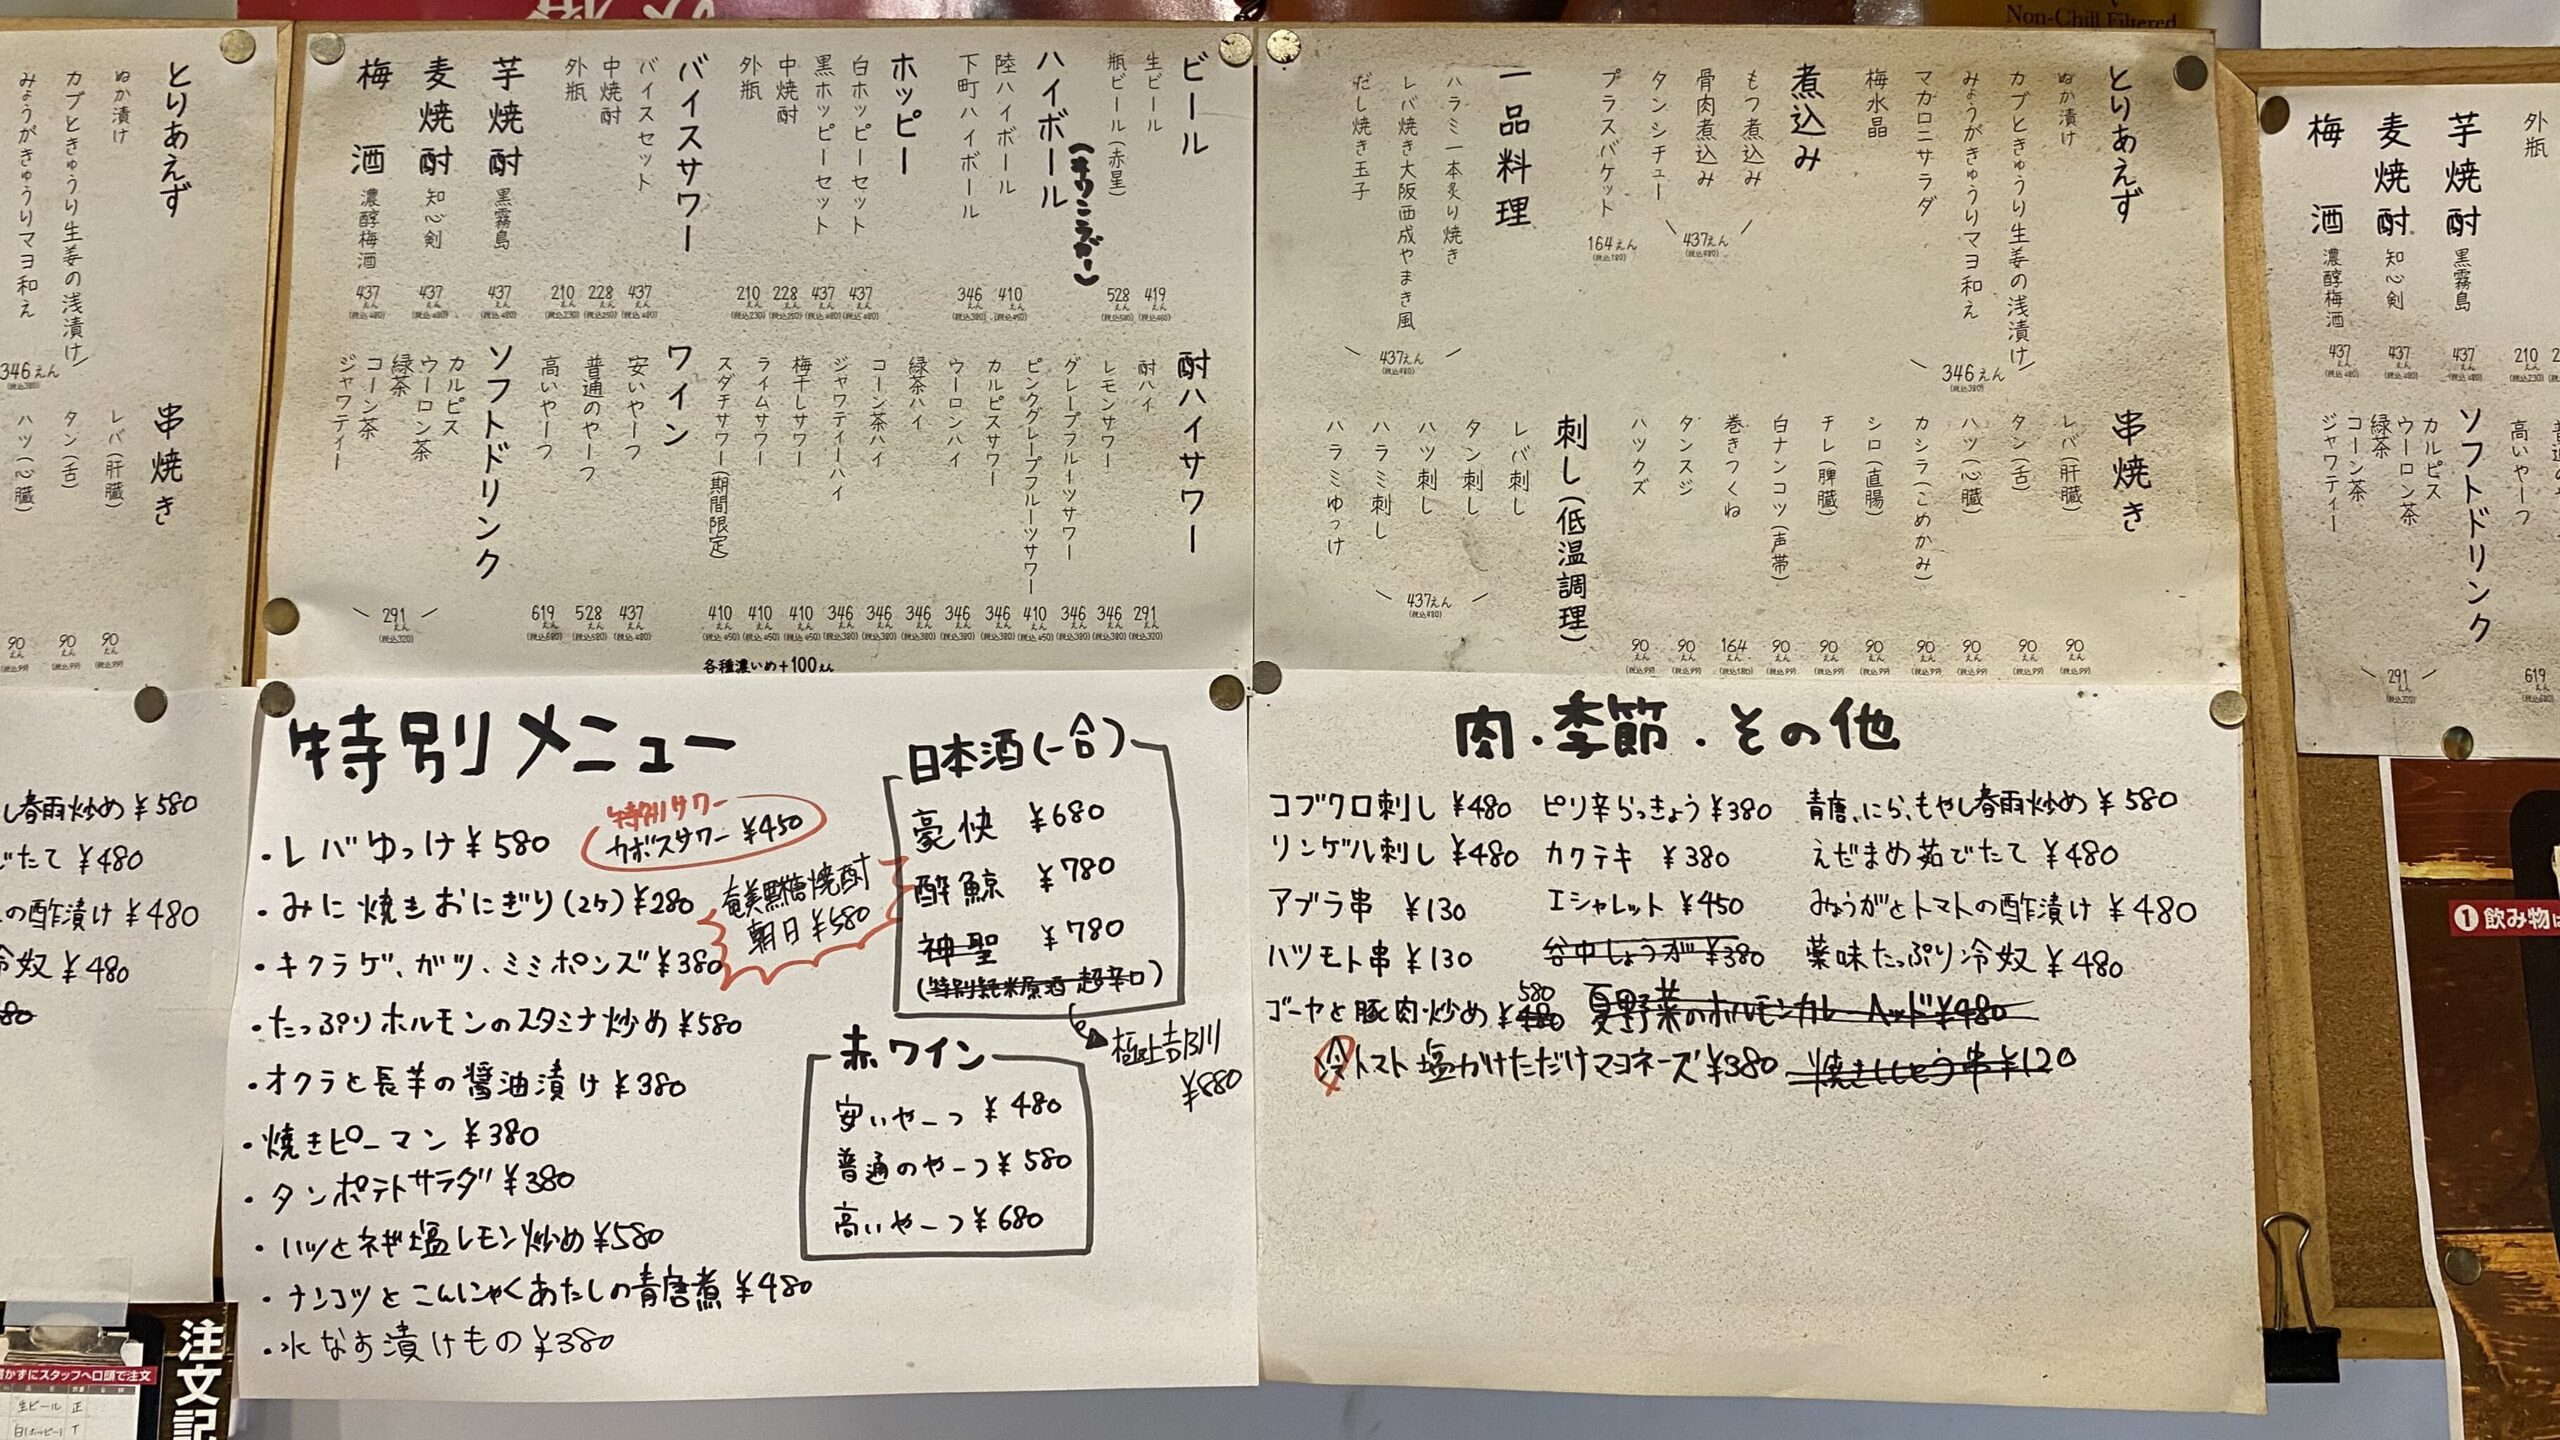 Non-Chill Filtered
とりあえず
ぬか漬け
カブときゅうり生姜の浅漬け
みょうがきゅうりマヨ和え
346えん
(税込380)
串焼き
レバ(肝臓)
タン(舌)
ハツ(心臓)
90えん
(税込99)
90えん
(税込99)
90えん
(税込99)
ビール
生ビール 419えん (税込460)
瓶ビール(赤星) 528えん (税込580)
ハイボール
陸ハイボール 410えん (税込450)
下町ハイボール 346えん (税込380)
ホッピー
白ホッピーセット 437えん (税込480)
黒ホッピーセット 437えん (税込480)
中焼酎 228えん (税込250)
外瓶 210えん (税込230)
バイスサワー
バイスセット 437えん (税込480)
中焼酎 228えん (税込250)
外瓶 210えん (税込230)
芋焼酎 黒霧島 437えん (税込480)
麦焼酎 知心剣 437えん (税込480)
梅酒 濃醇梅酒 437えん (税込480)
酎ハイサワー
酎ハイ 291えん (税込320)
レモンサワー 346えん (税込380)
グレープフルーツサワー 346えん (税込380)
ピンクグレープフルーツサワー 410えん (税込450)
カルピスサワー 346えん (税込380)
ウーロンハイ 346えん (税込380)
緑茶ハイ 346えん (税込380)
コーン茶ハイ 346えん (税込380)
ジャワティーハイ 346えん (税込380)
梅干しサワー 410えん (税込450)
ライムサワー 410えん (税込450)
スダチサワー(期間限定) 410えん (税込450)
各種濃いめ+100えん
ワイン
安いやーつ 437えん (税込480)
普通のやーつ 528えん (税込580)
高いやーつ 619えん (税込680)
ソフトドリンク
カルピス
ウーロン茶
緑茶
コーン茶
ジャワティー
291えん
(税込320)
とりあえず
ぬか漬け
カブときゅうり生姜の浅漬け
みょうがきゅうりマヨ和え
マカロニサラダ
梅水晶
346えん
(税込380)
煮込み
もつ煮込み
骨肉煮込み
タンシチュー
437えん
(税込480)
プラスバケット 164えん (税込180)
一品料理
ハラミ一本炙り焼き
レバ焼き大阪西成やまき風
だし焼き玉子
437えん
(税込480)
串焼き
レバ(肝臓) 90えん (税込99)
タン(舌) 90えん (税込99)
ハツ(心臓) 90えん (税込99)
カシラ(こめかみ) 90えん (税込99)
シロ(直腸) 90えん (税込99)
チレ(脾臓) 90えん (税込99)
白ナンコツ(声帯) 90えん (税込99)
巻きつくね 164えん (税込180)
タンスジ 90えん (税込99)
ハツクズ 90えん (税込99)
刺し(低温調理)
レバ刺し
タン刺し
ハツ刺し
ハラミ刺し
ハラミゆっけ
437えん
(税込480)
外瓶
210えん
(税込230)
芋焼酎 黒霧島 437えん (税込480)
麦焼酎 知心剣 437えん (税込480)
梅酒 濃醇梅酒 437えん (税込480)
高いやーつ
619えん
(税込680)
ソフトドリンク
カルピス
ウーロン茶
緑茶
コーン茶
ジャワティー
291えん
(税込320)
し春雨炒め ¥580
でたて ¥480
の酢漬け ¥480
冷奴 ¥480
特別メニュー
・レバゆっけ ¥580
・みに焼きおにぎり(2ケ) ¥280
・キクラゲ、ガツ、ミミポンズ ¥380
・たっぷりホルモンのスタミナ炒め ¥580
・オクラと長芋の醤油漬け ¥380
・焼きピーマン ¥380
・タンポテトサラダ ¥380
・ハツとネギ塩レモン炒め ¥580
・ナンコツとこんにゃくあたしの青唐煮 ¥480
・水なす漬けもの ¥380
特別サワー
カボスサワー ¥450
奄美黒糖焼酎
朝日 ¥580
日本酒(一合)
豪快 ¥680
酔鯨 ¥780
神聖 ¥780
(特別純米原酒 超辛口)
極上吉乃川
¥880
赤ワイン
安いやーつ ¥480
普通のやーつ ¥580
高いやーつ ¥680
肉・季節・その他
コブクロ刺し ¥480 ピリ辛らっきょう ¥380 青唐、にら、もやし春雨炒め ¥580
リンゲル刺し ¥480 カクテキ ¥380 えだまめ茹でたて ¥480
アブラ串 ¥130 エシャレット ¥450 みょうがとトマトの酢漬け ¥480
ハツモト串 ¥130 谷中しょうが ¥380 薬味たっぷり冷奴 ¥480
ゴーヤと豚肉炒め ¥480 580 夏野菜のホルモンカレーヘッド ¥480
冷トマト塩かけただけマヨネーズ ¥380 焼きししとう串 ¥120
① 飲み物は
かずにスタッフへ口頭で注文
生ビール 正
白(ホッピー) T
注文記